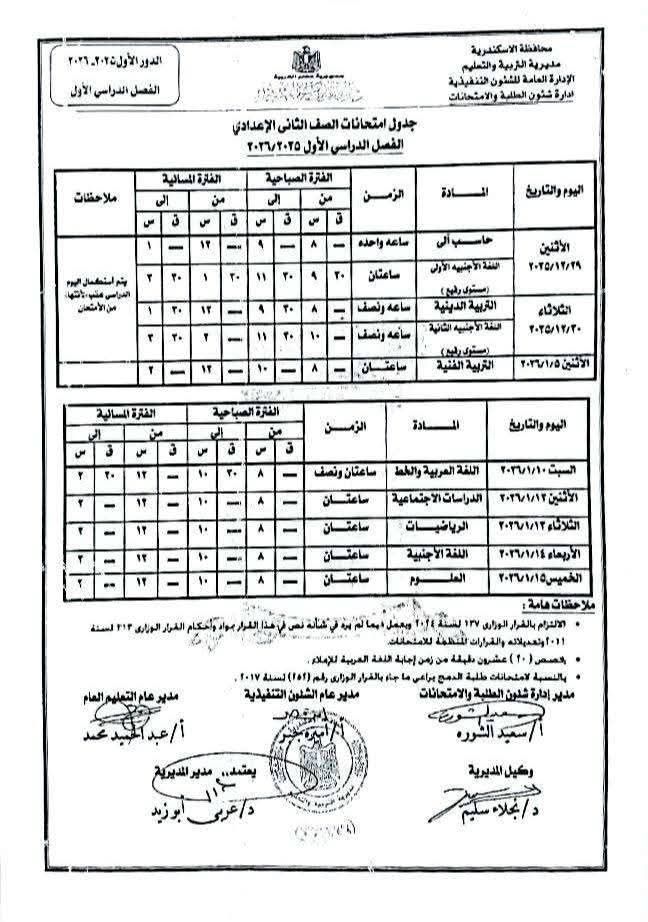 محافظة الاسكندرية
مديرية التربية والتعليم
الإدارة العامة للشئون التنفيذية
ادارة شئون الطلبة والامتحانات
جمهورية مصر العربية
الدور الأول ٢٠٢٥ـ ٢٠٢٦
الفصل الدراسي الأول
جدول امتحانات الصف الثانى الإعدادي
الفصل الدراسي الأول ٢٠٢٦/٢٠٢٥
اليوم والتاريخ المـــادة الزمـن الفترة الصباحية الفترة المسائية ملاحظات
من إلى من إلى
ق س ق س ق س ق س
الأثنين ٢٠٢٥/١٢/٢٩ حاسب ألى ساعه واحده ــ ٨ ــ ٩ ــ ١٢ ــ ١
اللغة الأجنبيه الأولى (مستوى رفيع) ساعتان ٣٠ ٩ ٣٠ ١١ ٣٠ ١ ٣٠ ٣
يتم أستكمال اليوم الدراسي عقب الأنتهاء من الأمتحان
الثلاثاء ٢٠٢٥/١٢/٣٠ التربية الدينية ساعه ونصف ــ ٨ ٣٠ ٩ ــ ١٢ ٣٠ ١
اللغة الأجنبيه الثانية (مستوى رفيع) ساعه ونصف ــ ١٠ ٣٠ ١١ ــ ٢ ٣٠ ٣
الأثنين ٢٠٢٦/١/٥ التربية الفنية ساعتـــان ــ ٨ ــ ١٠ ــ ١٢ ــ ٢
اليوم والتاريخ المـــادة الزمـن الفترة الصباحية الفترة المسائية
من إلى من إلى
ق س ق س ق س ق س
السبت ٢٠٢٦/١/١٠ اللغة العربية والخط ساعتان ونصف ــ ٨ ٣٠ ١٠ ــ ١٢ ٣٠ ٢
الأثنين ٢٠٢٦/١/١٢ الدراسات الاجتماعية ساعتـــان ــ ٨ ــ ١٠ ــ ١٢ ــ ٢
الثلاثاء ٢٠٢٦/١/١٣ الرياضيـــات ساعتـــان ــ ٨ ــ ١٠ ــ ١٢ ــ ٢
الأربعاء ٢٠٢٦/١/١٤ اللغة الأجنبية ساعتـــان ــ ٨ ــ ١٠ ــ ١٢ ــ ٢
الخميس ٢٠٢٦/١/١٥ العلـــوم ساعتـــان ــ ٨ ــ ١٠ ــ ١٢ ــ ٢
ملاحظات هامة :
• الالتزام بالقرار الوزارى ١٣٧ لسنة ٢٠٢٤ ويعمل فيما لم يرد في شأنه نص في هذا القرار بمواد وأحكام القرار الوزارى ٣١٣ لسنة
٢٠١١ وتعديلاته والقرارات المنظمة للامتحانات.
• يخصص (٢٠) عشرون دقيقة من زمن إجابة اللغة العربية للإملاء.
• بالنسبة لامتحانات طلبة الدمج يراعى ما جاء بالقرار الوزارى رقم (٢٥٢) لسنة ٢٠١٧ .
مدير إدارة شئون الطلبة والامتحانات
مدير عام الشئون التنفيذية
مدير عام التعليم العام
أ/ سعيد الشوره
أ/ أميره جبر
أ/ عبد الحميد محمد
وكيل المديرية
يعتمد،، مدير المديرية
د/ نجلاء سليم
د/ عربى أبوزيد